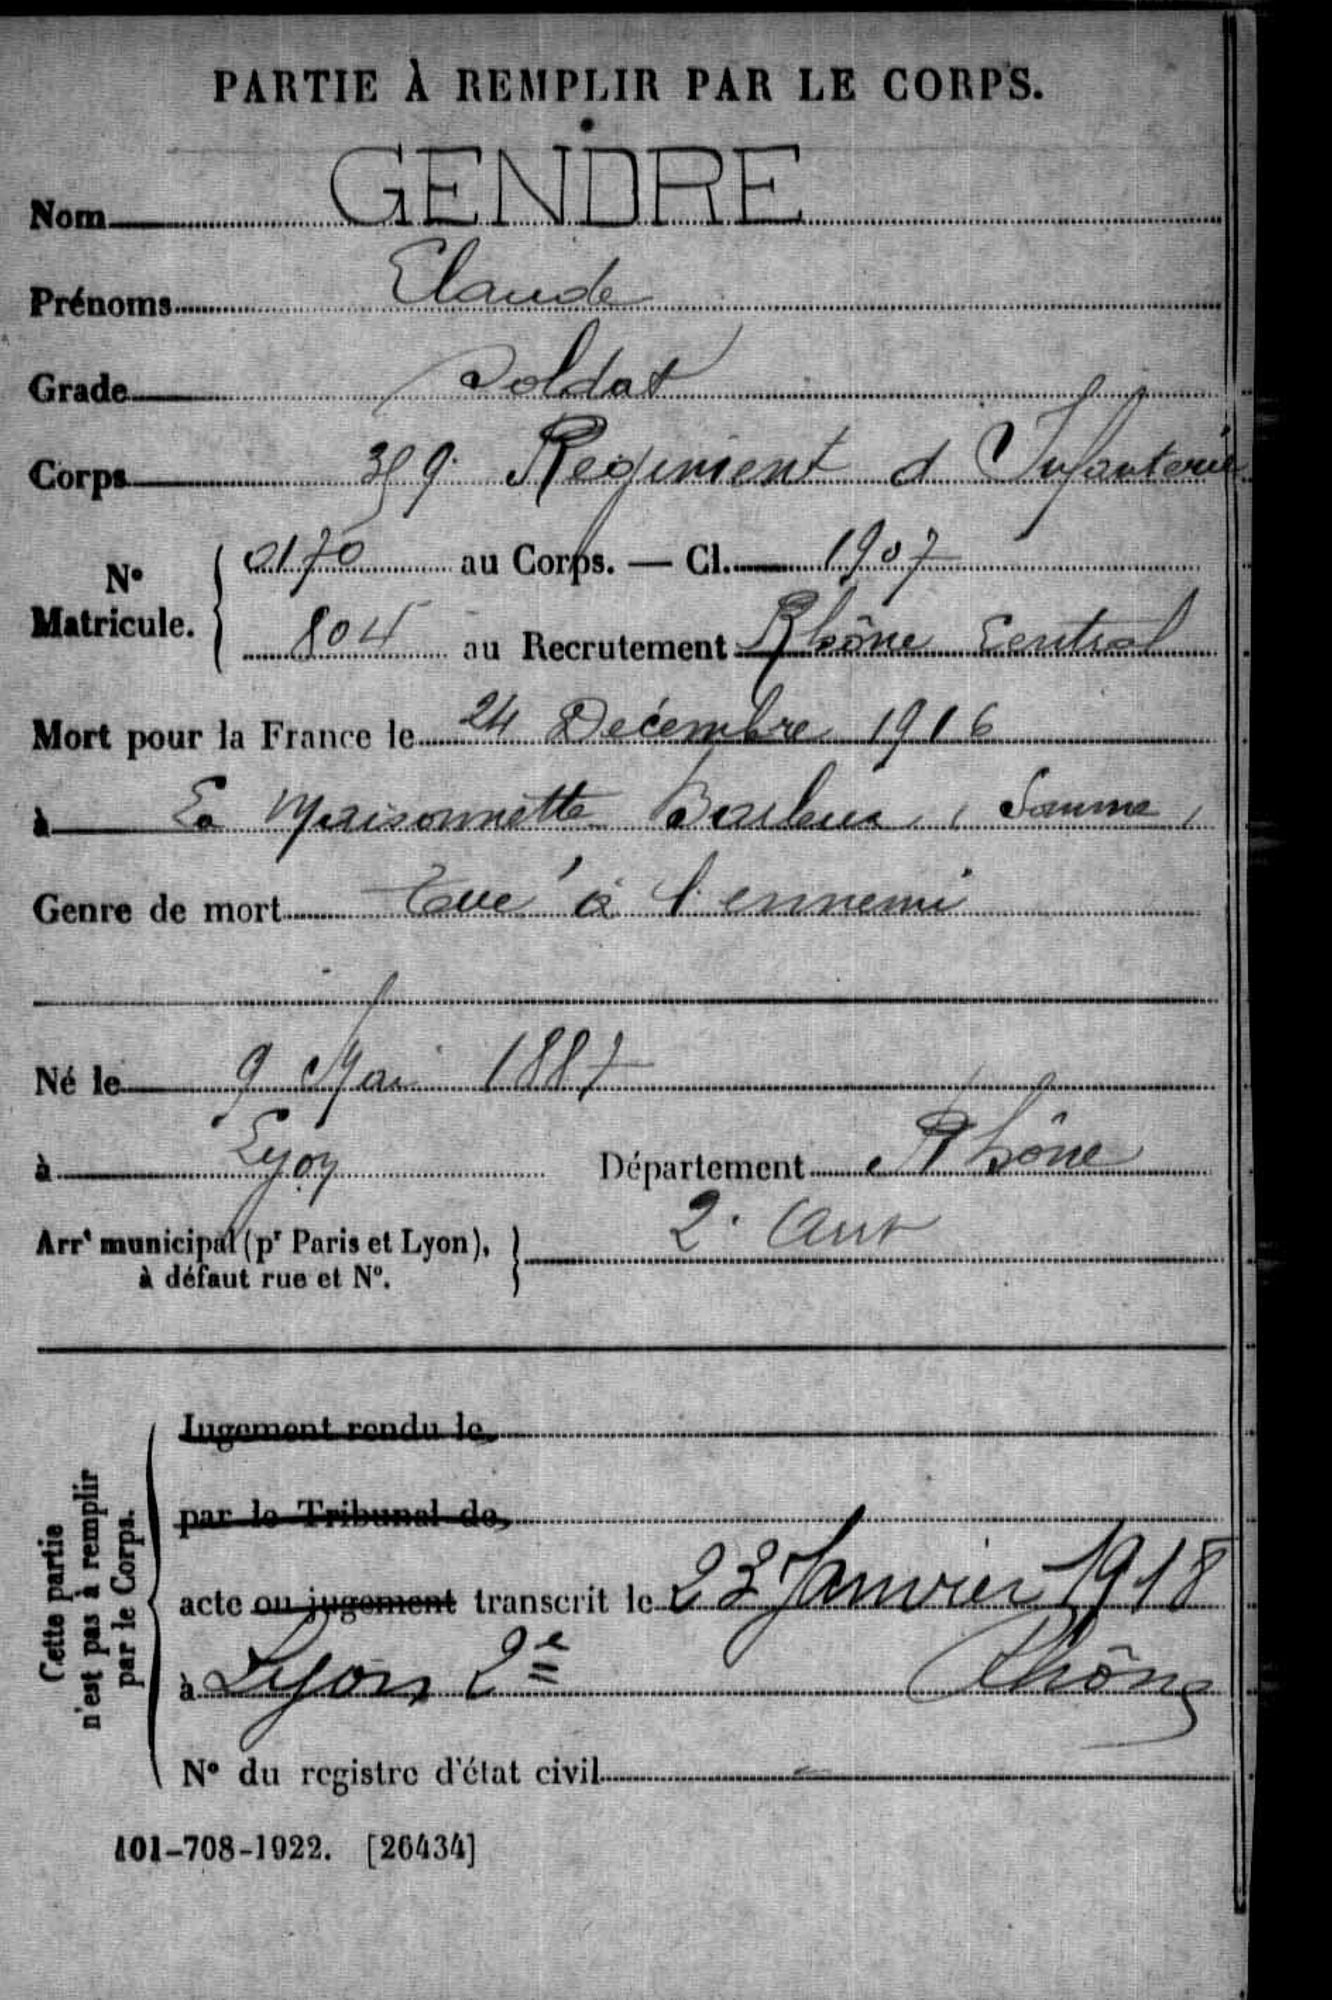 PARTIE À REMPLIR PAR LE CORPS.
Nom GENDRE
Prénoms Claude
Grade Soldat
Corps 359e Regiment d'Infanterie
N° Matricule. { 0170 au Corps. — Cl. 1907
804 au Recrutement Rhône Central
Mort pour la France le 24 Décembre 1916
à La Maisonnette Barleux (Somme)
Genre de mort Tué à l'ennemi
Né le 9 Mai 1887
à Lyon Département Rhône
Arrt municipal (pr Paris et Lyon), à défaut rue et N°. } 2e Arrt
Cette partie n'est pas à remplir par le Corps.
Jugement rendu le
par le Tribunal de
acte ou jugement transcrit le 23 Janvier 1918
à Lyon 2e Rhône
N° du registre d'état civil
101-708-1922. [26434]